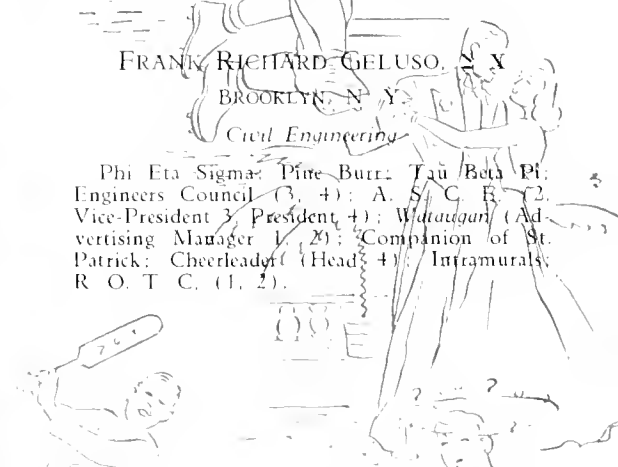 FRANK RICHARD GELUSO, Σ X
BROOKLYN, N. Y.
Civil Engineering
Phi Eta Sigma; Pine Burr; Tau Beta Pi;
Engineers Council (3, 4); A. S. C. E. (2,
Vice-President 3, President 4); Wataugan (Ad-
vertising Manager 1, 2); Companion of St.
Patrick; Cheerleader (Head 4); Intramurals;
R. O. T. C. (1, 2).
? ?